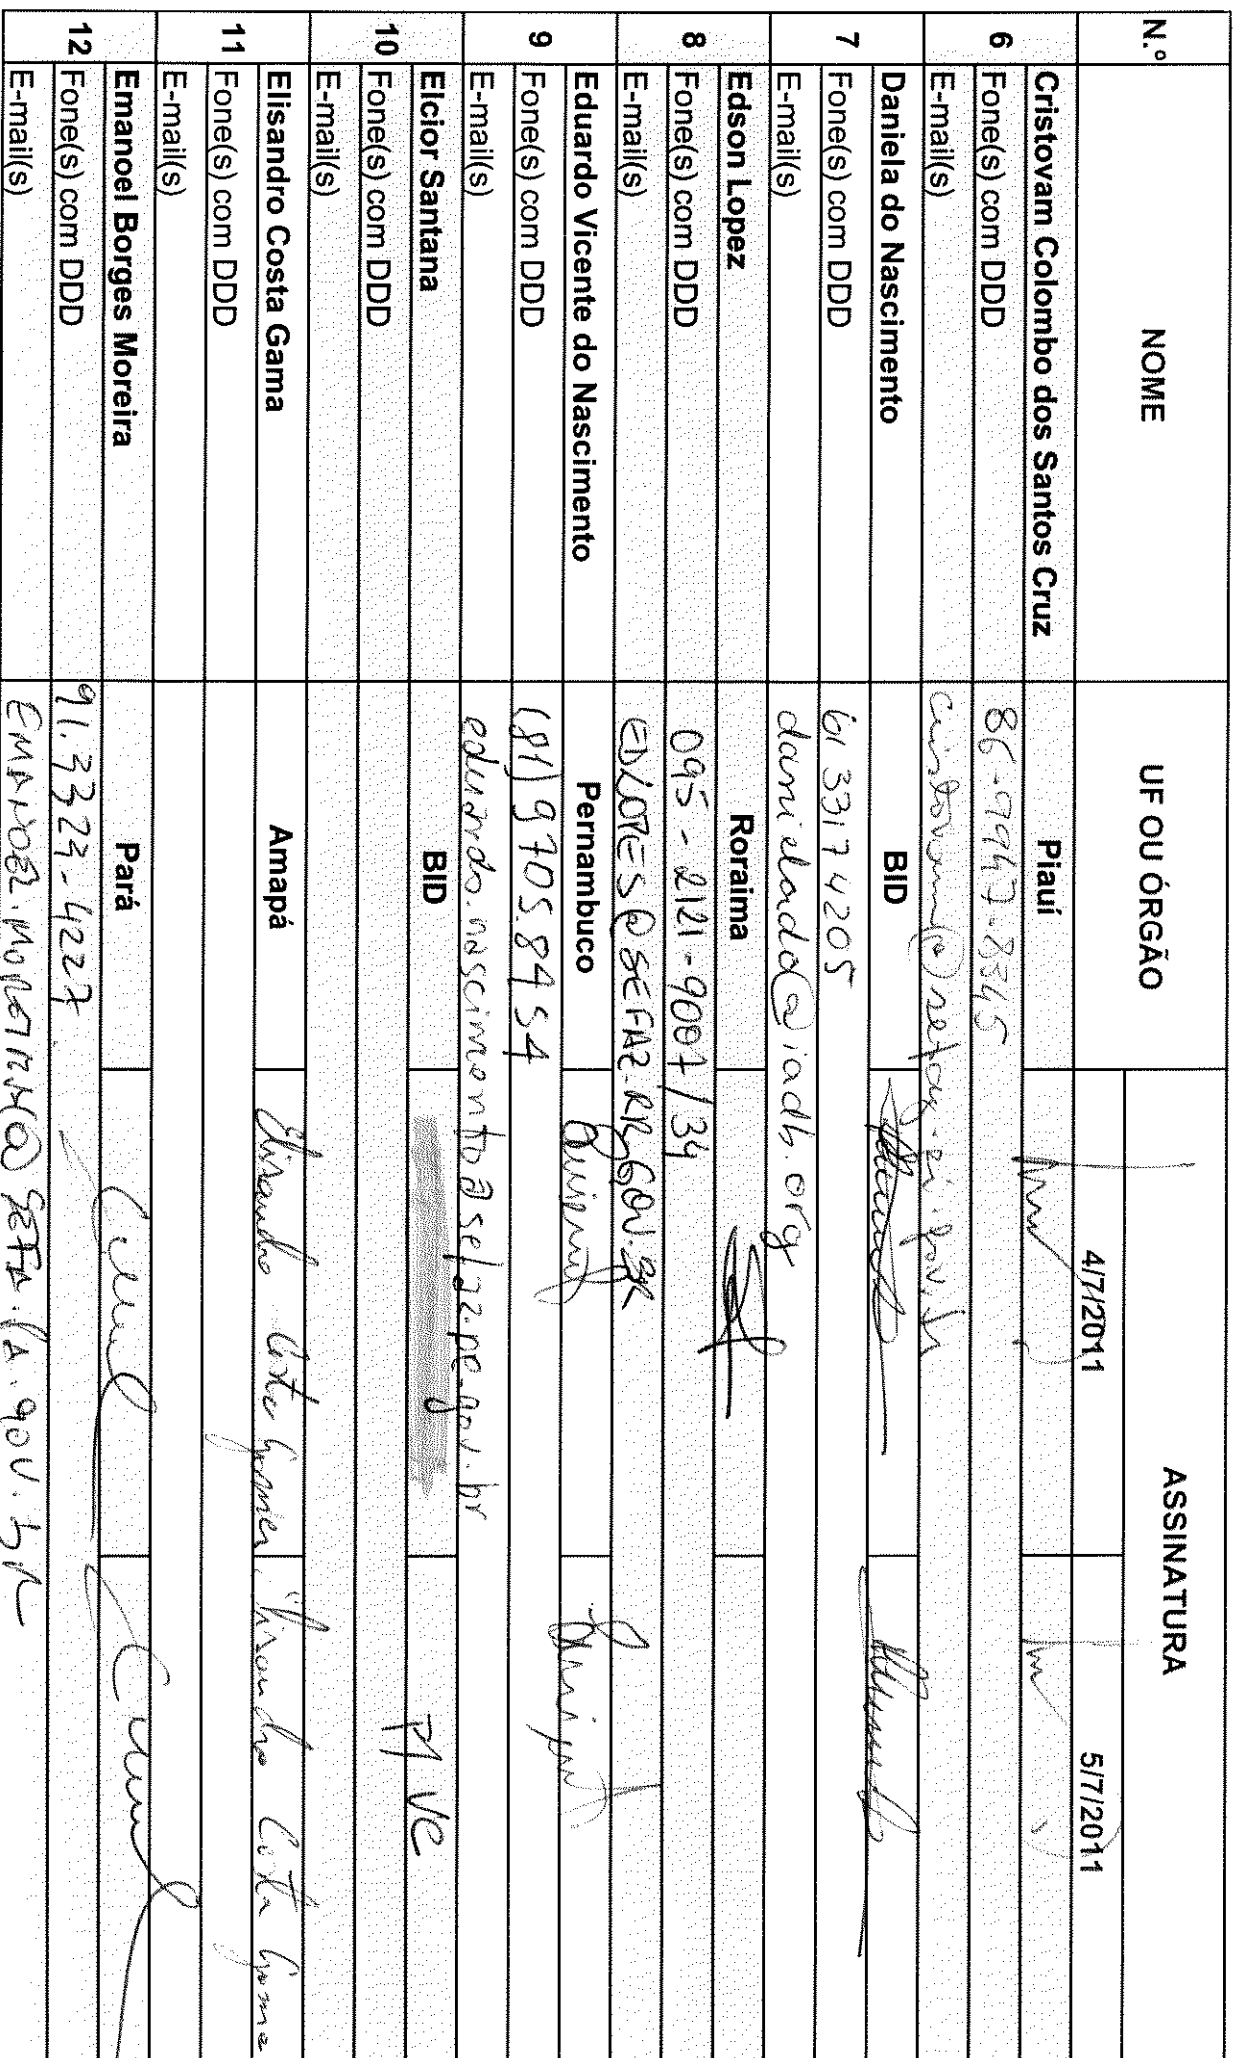 N.º NOME UF OU ÓRGÃO ASSINATURA
4/7/2011 5/7/2011
6 Cristovam Colombo dos Santos Cruz Piauí
Fone(s) com DDD 86-9947-8345
E-mail(s)
7 Daniela do Nascimento BID
Fone(s) com DDD 61 3317 4205
E-mail(s) danieladd@iadh.org
8 Edson Lopez Roraima
Fone(s) com DDD 095-2121-9007/34
E-mail(s) EDLOPES@SEFAZ.RR.GOV.BR
9 Eduardo Vicente do Nascimento Pernambuco
Fone(s) com DDD (81) 9705.8454
E-mail(s) eduardo.nascimento@sefaz.pe.gov.br
10 Elcior Santana BID
Fone(s) com DDD
E-mail(s)
11 Elisandro Costa Gama Amapá Elisandro Costa Gama
Fone(s) com DDD
E-mail(s)
12 Emanoel Borges Moreira Pará
Fone(s) com DDD 91.3323-4227
E-mail(s) EMANOEL.MOREIRA@SEFA.PA.gov.br